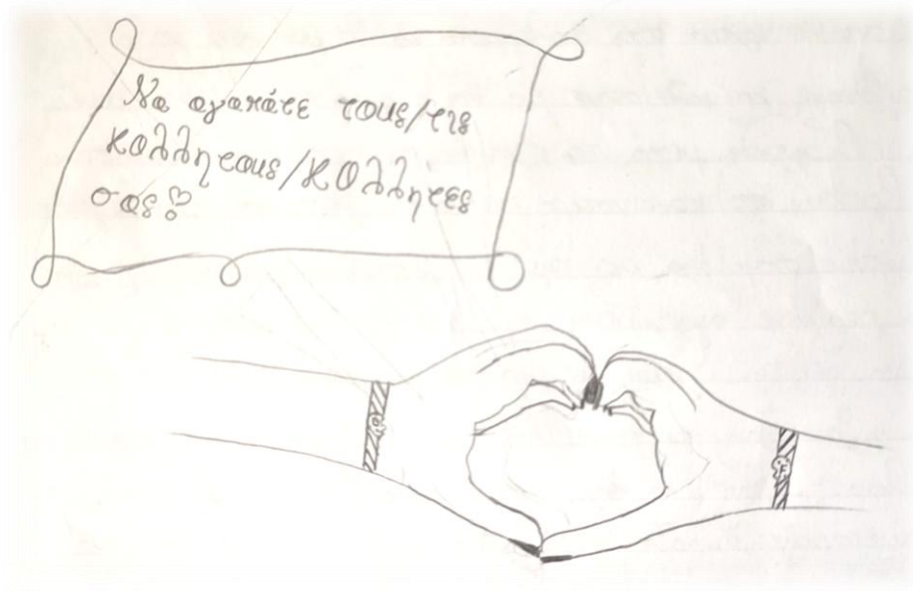 Να αγαπάτε τους/τις
κολλητους/κολλητες
σας